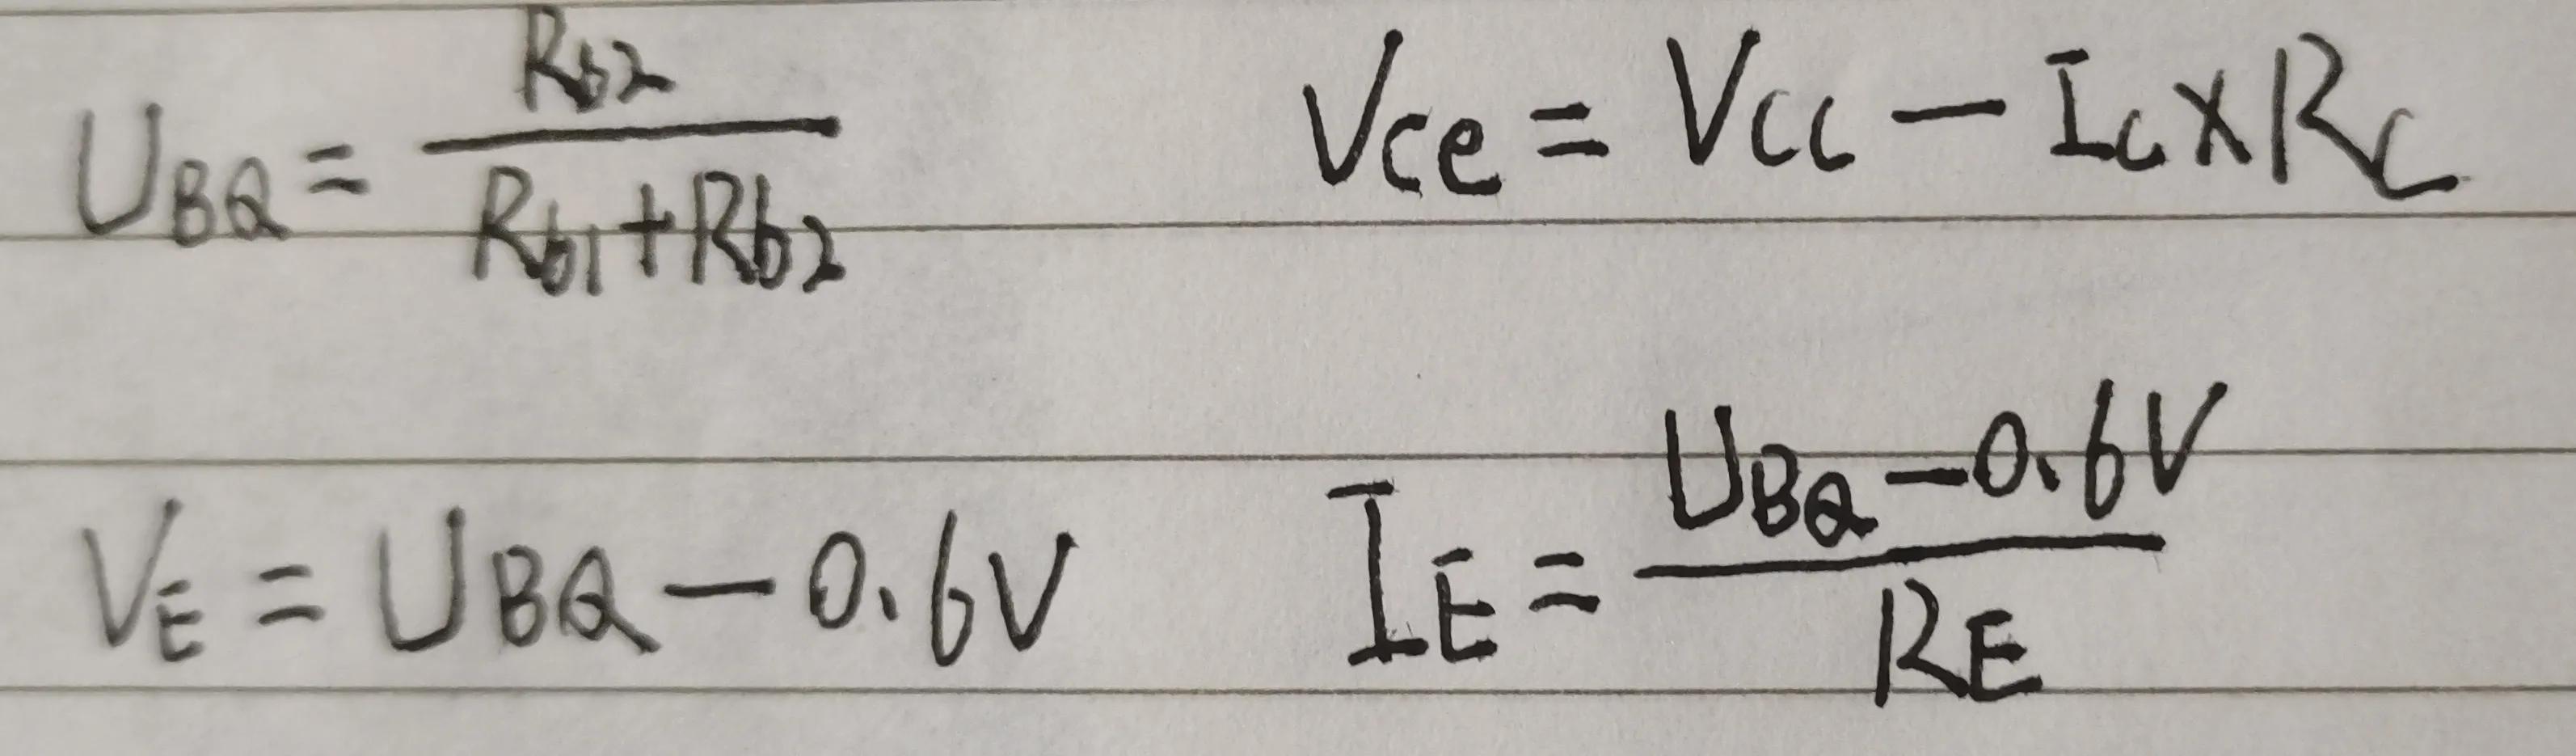 U_BQ = R_b2 / (R_b1 + R_b2)
V_ce = V_cc - I_c × R_c
V_E = U_BQ - 0.6V
I_E = (U_BQ - 0.6V) / R_E